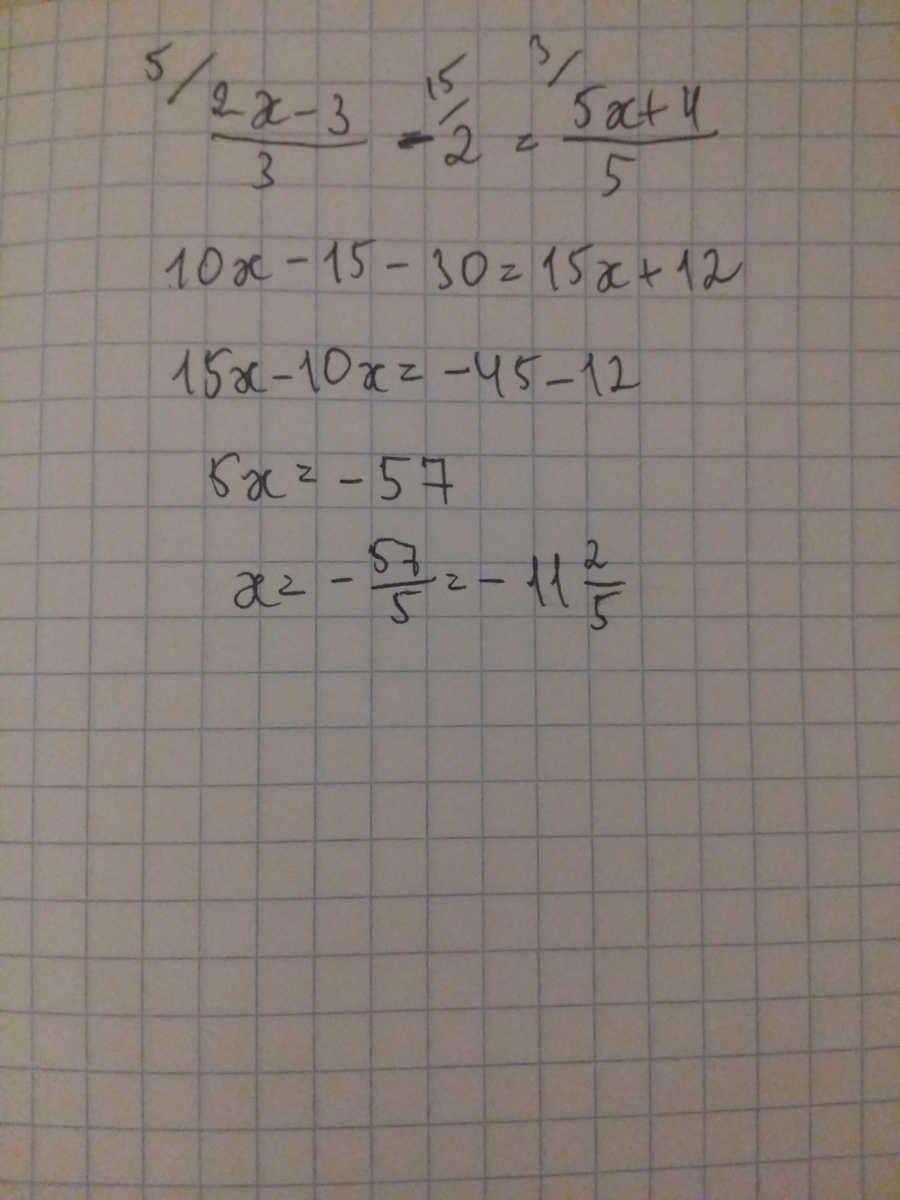 5/ (2x-3)/3 - 15/ 2 = 3/ (5x+4)/5
10x - 15 - 30 = 15x + 12
15x - 10x = -45 - 12
5x = - 57
x = - 57/5 = - 11 2/5